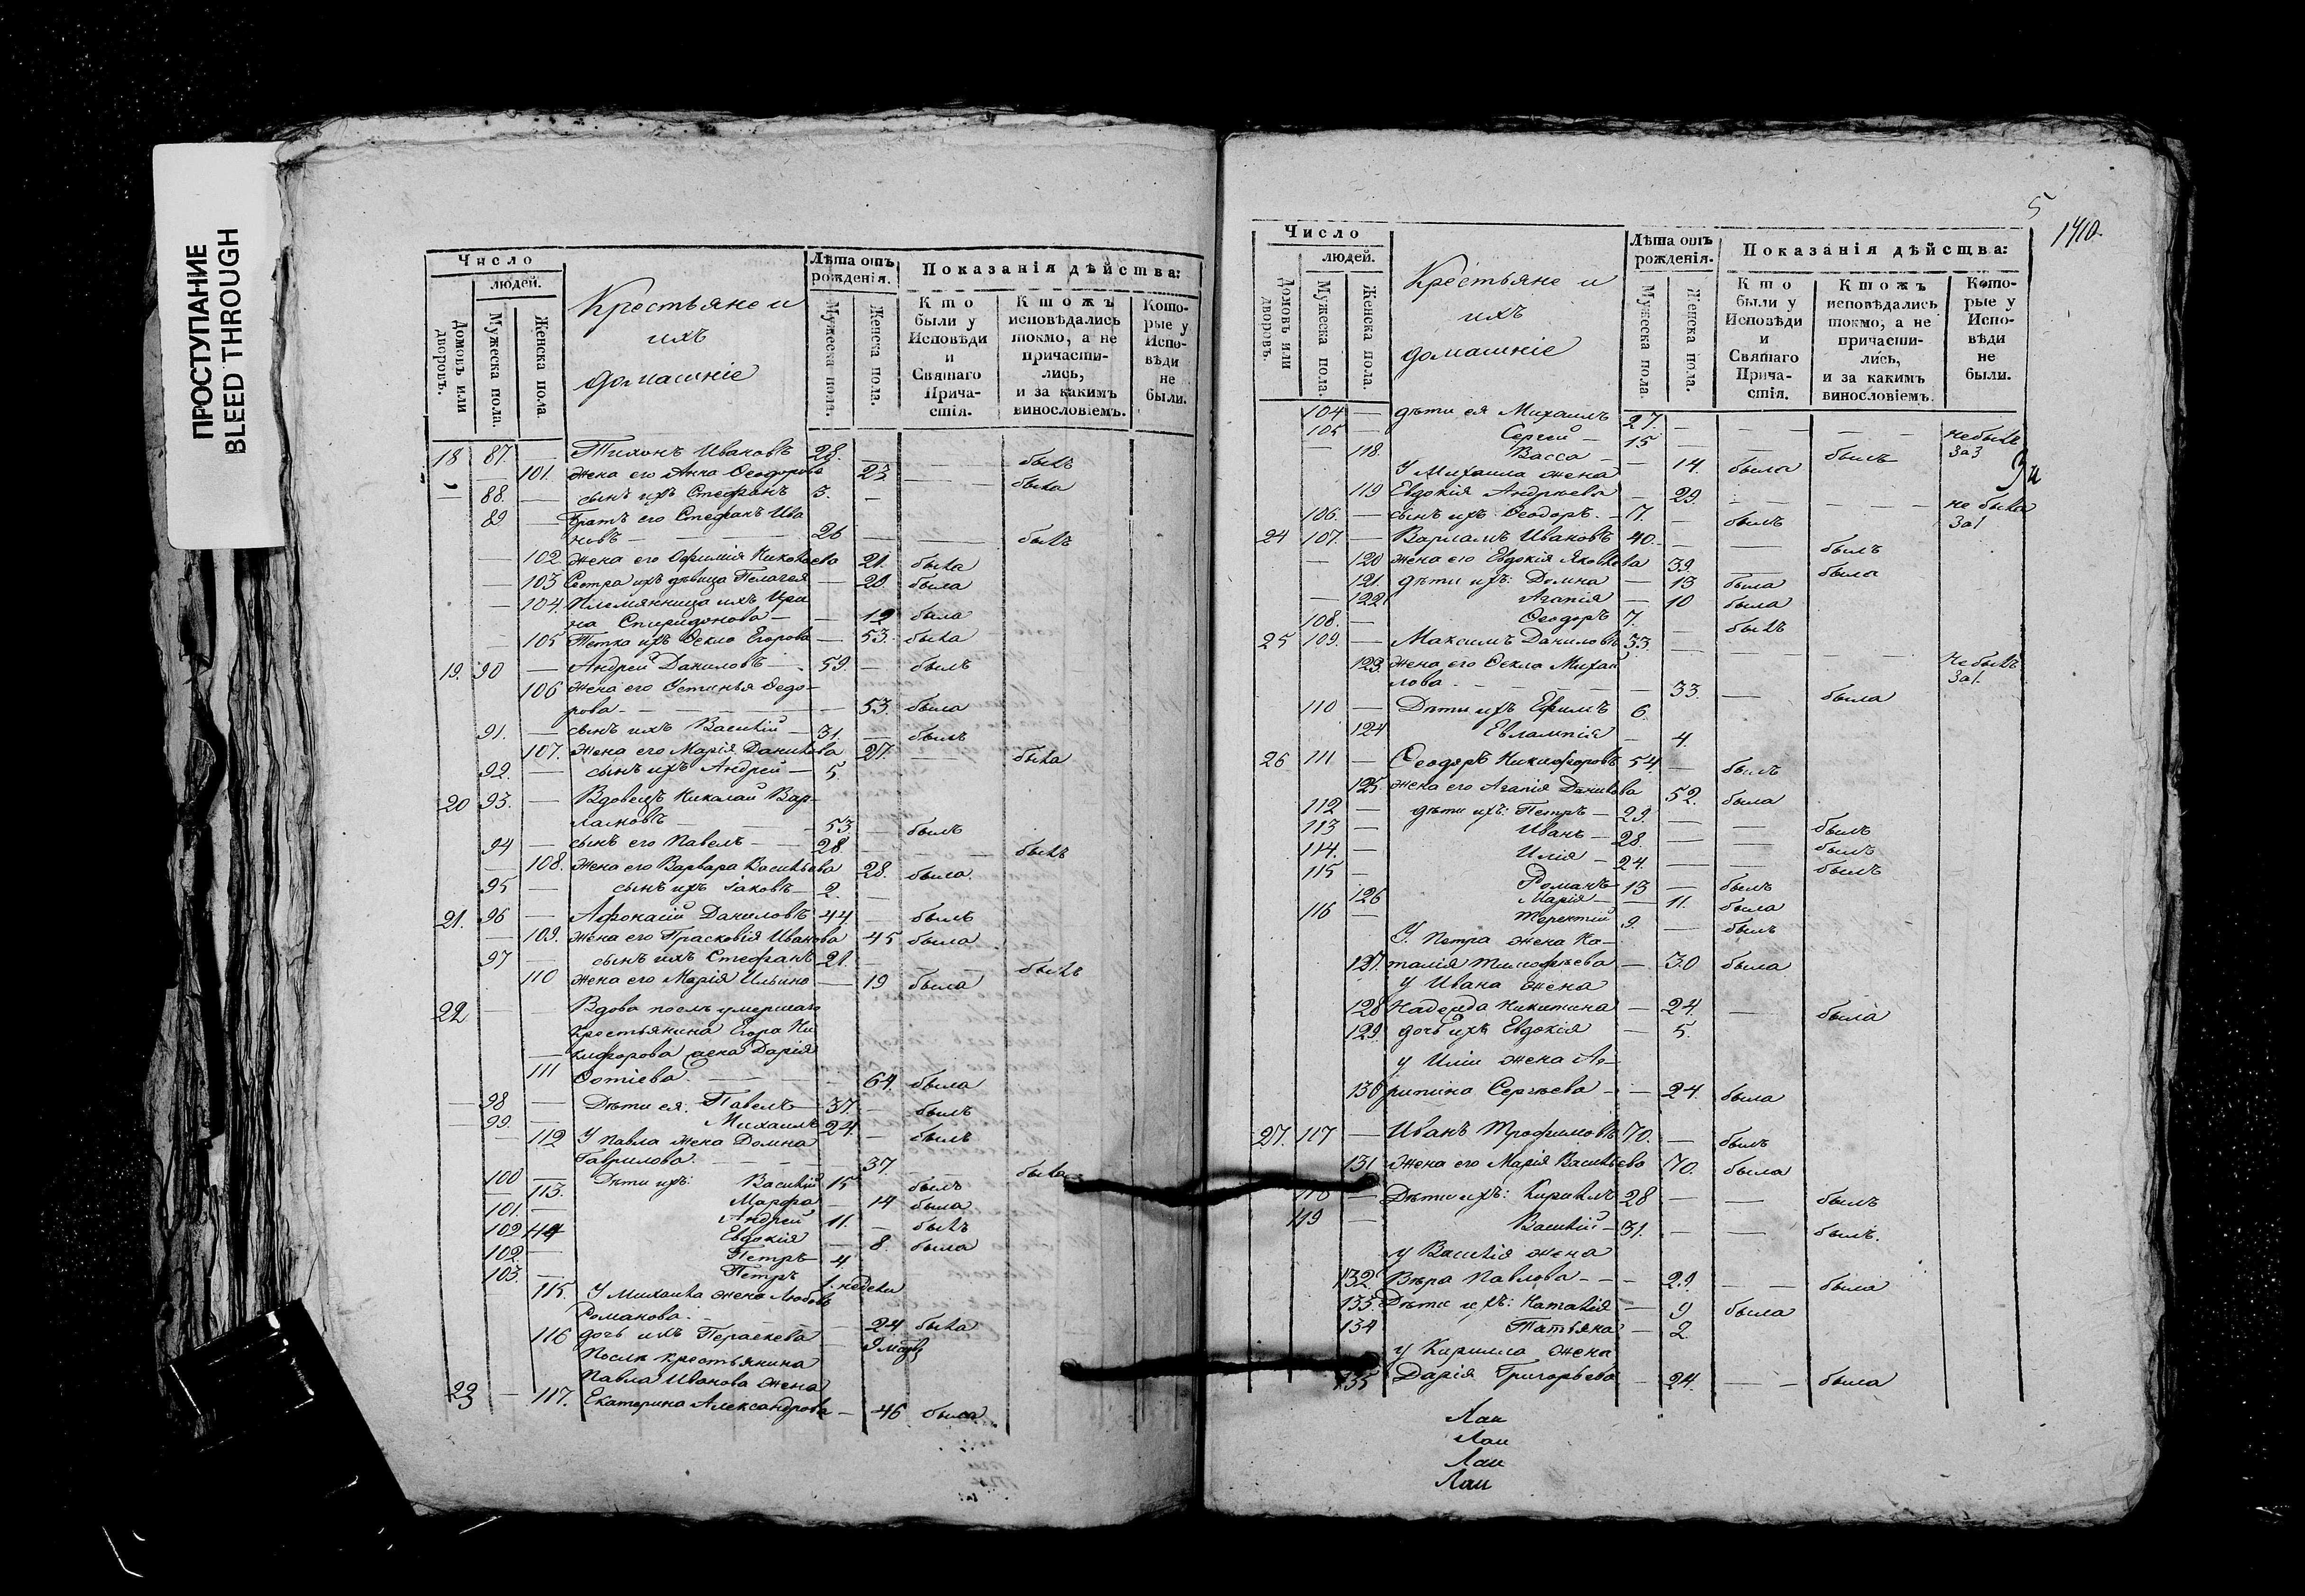 ПРОСТУПАНИЕ
BLEED THROUGH
Число
людей.
Домовъ или дворовъ.
Мужеска пола.
Женска пола.
Крестьяне и
ихъ
домашніе
Лѣта отъ
рожденія.
Мужеска пола.
Женска пола.
Показанія дѣйства:
Кто были у Исповѣди и Святаго Прича-стія.
Ктожъ исповѣдались токмо, а не причасти-лись, и за какимъ винословіемъ.
Кото-рые у Испо-вѣди не были.
18 87. — Тихонъ Ивановъ 28. — — быlъ
— 101. жена его Анна Ѳеодорова 23 — — была
— 88. — сынъ ихъ Стефанъ 3. —
89. — Братъ его Стефанъ Ива
новъ — 26 — — былъ
— 102 жена его Офимія Николаева 21. была
— 103 Сестра ихъ дѣвица Пелагея — 20. была
— 104. Племянница ихъ Ири
на Спиридонова — 12 была
— 105 Тетка ихъ Ѳекла Егорова — 53. была
19. 90 — Андрей Даниловъ — 59. — былъ
106 жена его Устинья Ѳедо-
рова — 53. была
91. — сынъ ихъ Василій — 31. — былъ
107. жена его Марія Данилова 27. — была
92. — сынъ ихъ Андрей — 5
20 93. — Вдовецъ Николай Вар-
ламовъ — 53. — былъ
94 — сынъ его Павелъ — 28 — былъ
— 108. жена его Варвара Васильева 28. была.
95 — сынъ ихъ Іаковъ — 2. —
21. 96 — Афонасій Даниловъ 44 — былъ
— 109. жена его Прасковія Иванова 45 была
97 — сынъ ихъ Стефанъ 21. — — былъ
110 жена его Марія Ильина — 19 была
22 — — Вдова послѣ умершаго
Крестьянина Егора Ни
кифорова жена Дарія
— 111 Фотіева. — 64. была
— 98 — Дѣти ея. Павелъ — 37. — былъ
— 99. — Михаилъ 24. — былъ
112 У Павла жена Домна
Гаврилова. — 37. — была
100 — Дѣти ихъ: Василій 15 былъ
— 113. Марфа — 14 была
101. — Андрей 11. — былъ
102 114 Евдокія — 8. была
102. — Петръ 4.
103. — Петръ 1. недели
115. У Михаила жена Любовь
Романова. — 24 была
116 дочь ихъ Параскева — 9 мес
Послѣ крестьянина
Павла Иванова жена
23 — 117. Екатерина Александрова — 46 была
5
1410.
Число
людей.
Домовъ или дворовъ.
Мужеска пола.
Женска пола.
Крестьяне и
ихъ
домашніе
Лѣта отъ
рожденія.
Мужеска пола.
Женска пола.
Показанія дѣйства:
Кто были у Исповѣди и Святаго Прича-стія.
Ктожъ исповѣдались токмо, а не причасти-лись, и за какимъ винословіемъ.
Кото-рые у Испо-вѣди не были.
104 — дѣти ея Михаилъ 27. — — — не былъ
105 — Сергей — 15 — — былъ за3
118. Васса — — 14. была
У Михаила жена
119 Евдокія Андрѣева — 29. — — не была
106. — сынъ ихъ Ѳеодоръ. — 17. — былъ за1
24 107. — Варламъ Ивановъ 40. — — былъ
— 120 жена его Евдокія Яковлева 39. — была
121. дѣти ихъ: Домна — 13 была
— 122. Агапія — 10 была
108. — Ѳеодоръ 7. — былъ
25 109. — Максимъ Даниловъ 33. — — — не былъ
123. жена его Ѳекла Михаи за1.
лова — 33. — была
110 — Дѣти ихъ Ефимъ 6.
124 Евлампія — 4.
26 111 — Ѳеодоръ Никифоровъ 54. — былъ
125. жена его Агапія Данилова 52. была
112 — дѣти ихъ: Петръ — 29. — — былъ
113 — Иванъ — 28. — — былъ
114. — Илія — 24. — — былъ
115 — Романъ 13 — былъ
126 Марія — — 11. была
116 — Терентій 9. — былъ
У Петра жена На-
127. талія Тимофѣева — 30 была
у Ивана жена
128 Надежда Никитина — 24. — была
129. дочь ихъ Евдокія — 5.
у Иліи жена Аг-
130 рипина Сергѣева — — 24. была
27. 117 — Иванъ Трофимовъ 70. — былъ
131 жена его Марія Васильева 70. была
118 — Дѣти ихъ: Кирилъ 28 — — былъ
119 — Василій — 31. — — былъ.
у Василія жена
132 Вѣра Павлова — — 29. — — была
133. Дѣти ихъ: Наталія — 9 была
134 Татьяна — 2.
у Кирилла жена
135 Дарія Григорьева — 24. — — была